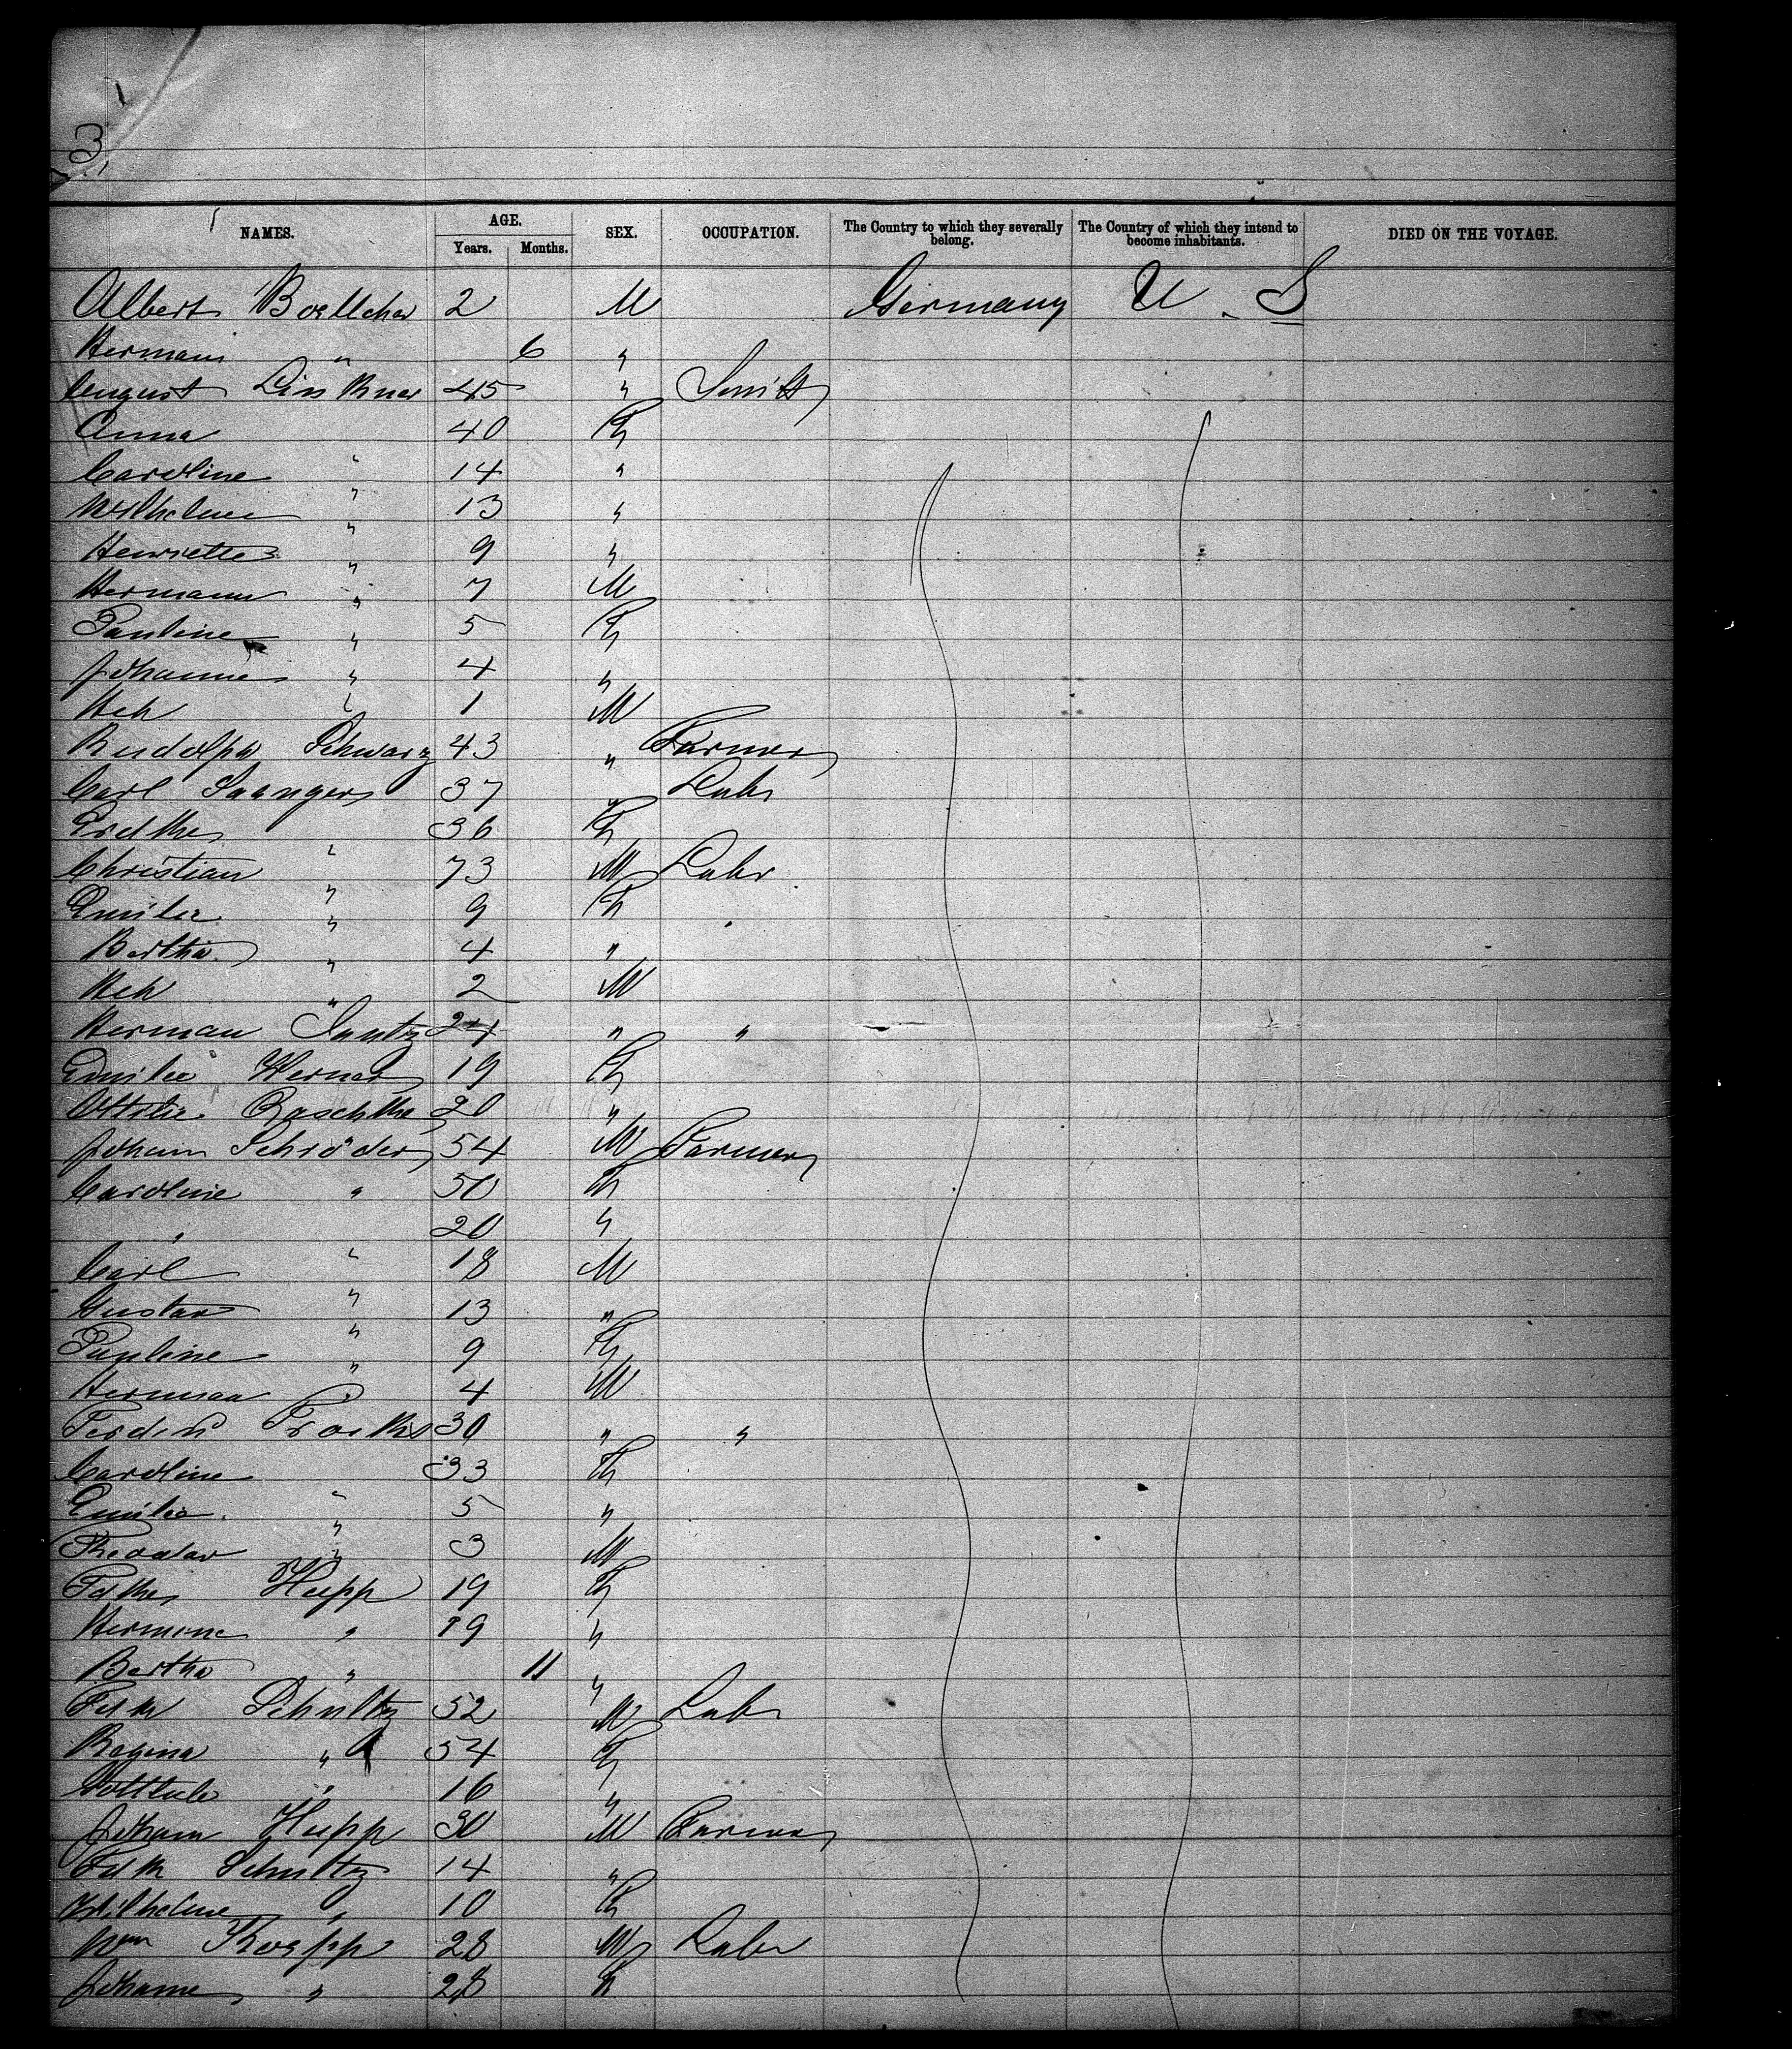 3
NAMES. AGE. SEX. OCCUPATION. The Country to which they severally belong. The Country of which they intend to become inhabitants. DIED ON THE VOYAGE.
Years. Months.
Albert Boettcher 2 M Germany U.S
Hermann " 6 "
August 45 " Smith
Anna 40 F
Caroline " 14 "
Wilhelmine " 13 "
Henriette " 9 "
Hermann " 7 M
Pauline " 5 F
Johanne " 4 "
Hch " 1 M
Rudolph Schwarz 43 " Farmer
Carl 37 " Labr
36 F
Christian " 73 M Labr
Emilie " 9 F
Bertha " 4 "
Hch " 2 M
Herman 24 " "
Emilie Werner 19 F
Ottilie 20 "
Johann Schröder 54 M Farmer
Caroline " 50 F
" 20 "
Carl " 18 M
Gustav " 13 "
Pauline " 9 F
Herman " 4 M
Ferdin 30 " "
Caroline 33 F
Emilie " 5 "
Theodor " 3 M
Hupp 19 F
Hermine " 19 "
Bertha " 11 "
Fdk Schultz 52 M Labr
Regina " 54 F
Gottlieb " 16 "
Johann Hupp 30 M Farmer
Fdk Schultz 14 "
Wilhelmine " 10 F
Wm Koepp 28 M Labr
Johanne " 28 F